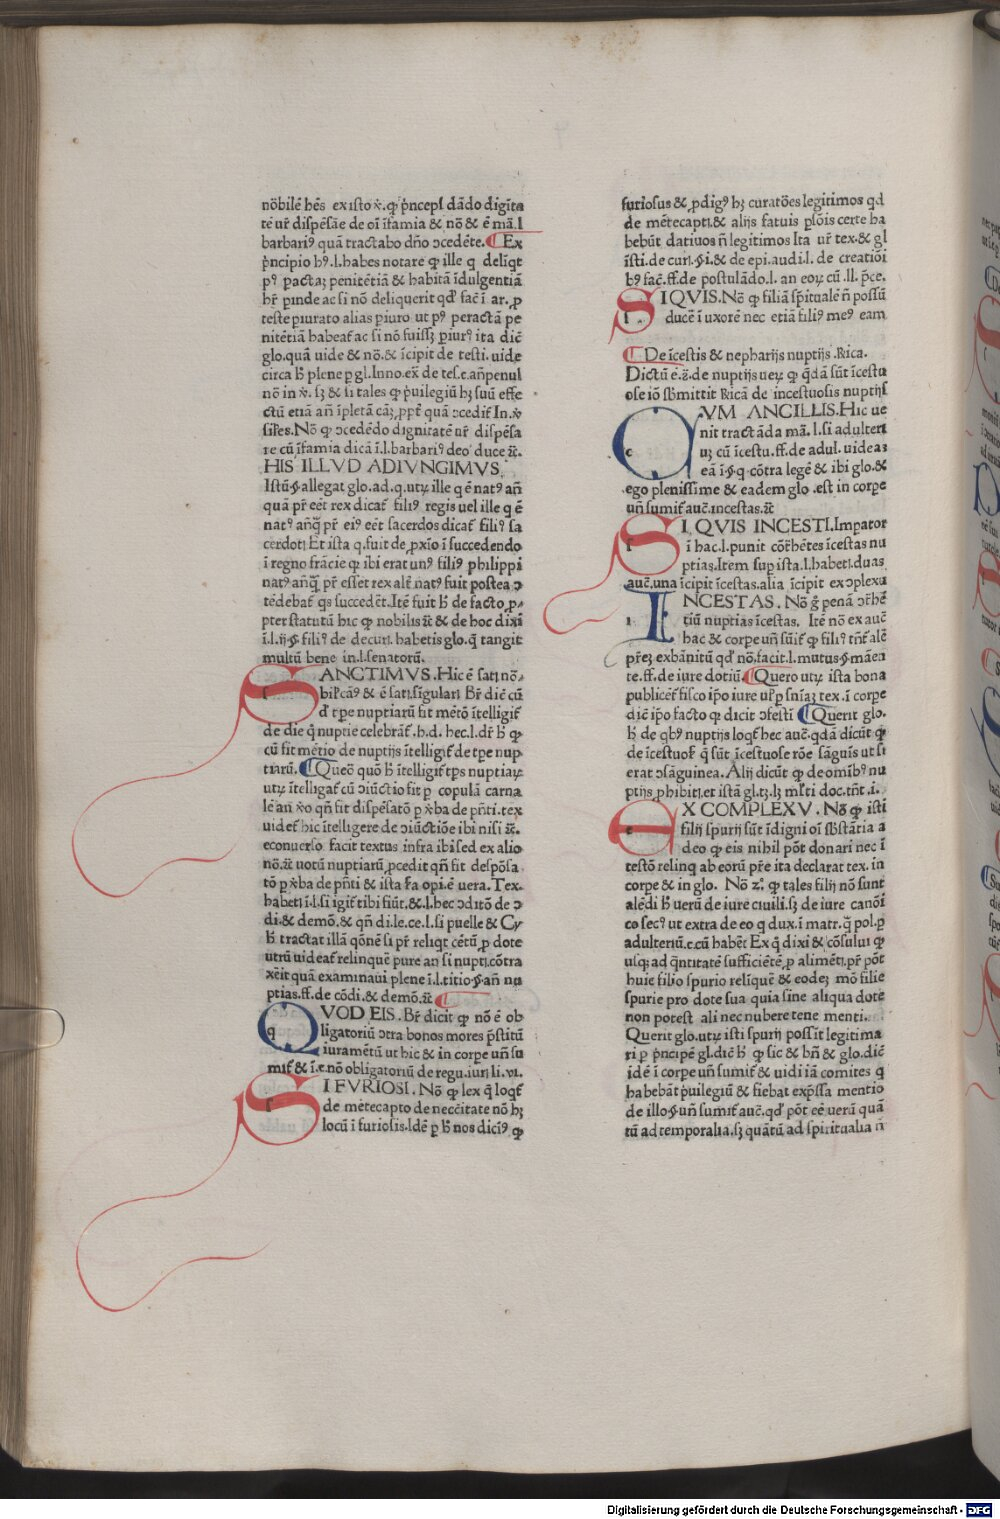 nōbilē hēs existoẏ.ꝙ p̄ncepſ dādo digīta
tē ur̄ diſpēſāe de oī īfamia & nō & ē mā.l
barbariꝰ quā tractabo dn̄o ↄcedēte. Ex
p̄ncipio hꝰ.l.habes notare ꝙ ille q deliq̄t
pꝰ pactaꝫ penitētiā & habitā īdulgentiā
hr̄ pinde ac ſi nō deliquerit qd̓ fac̄ ī ar.ꝑ
teſte piurato alias piuro ut pꝰ peractā pe
nitētiā habeat̄ ac ſi nō fuiſſꝫ piurꝰ ita dic̄
glo.quā uide & nō.& īcipit de teſti.uide
circa h̄ plene ꝑ gl.Inno.ex̄ de teſ.c.an̄penul
nō in ẏ. ſꝫ & ſi tales ꝙ p̄uilegiū hꝫ ſuū effe
ctū etiā an̄ īpletā cāꝫ,ppt̄ quā ↄcedit̄ In.ẏ
ſiłes.Nō ꝙ ↄcedēdo dignitatē ur̄ diſpēſa
re cū īfamia dicā ī.l.barbariꝰ deo duce ⁊c̄.
HIS ILLVD ADIVNGIMVS
Iſtū.§.allegat glo.ad.q.utꝝ ille q ē natꝰ an̄
quā pr̄ eēt rex dicat̄ filiꝰ regis uel ille q ē
natꝰ an̄q̄ pr̄ eiꝰ eēt ſacerdos dicat̄ filiꝰ ſa
cerdotꝭ Et iſta q.fuit de ꝓxīo ī ſuccedendo
ī regno frācie ꝙ ibi erat unꝰ filiꝰ philippi
natꝰ an̄q̄ pr̄ eſſet rex alt̄ natꝰ fuit poſtea ↄ
tēdebat̄ qs ſuccedēt.Itē fuit h̄ de facto,ꝓ
pter ſtatutū hic ꝙ nobilis ⁊c̄ & de hoc dixī
ī.l.ij.§.filiꝰ de decurꝭ.habetis glo.q̄ tangit
multū bene in.l.ſenatorū.
SANCTIMVS.Hic ē ſatꝭ nō
bił cāꝰ & ē ſatꝭ ſīgularꝭ Br̄ dic̄ cū
d̄ tpe nuptiarū fit mētō ītelligit̄
de die q̄ nuptie celebrāt̄.h.d. hec.l.dr̄ h̄ ꝙ
cū fit mētio de nuptijs ītelligit̄ de tpe nup
tiarū. Queō quō h̄ ītelligit̄ tps nuptiaꝝ
utꝝ ītelligat̄ cū ↄiūctio fit ꝑ copulā carna
lē an ẏo qn̄ fit diſpēſatō ꝑ ẏba de pn̄ti.tex
uidet̄ hic ītelligere de ↄiūctiōe ibi niſi ⁊c̄.
econuerſo facit textus infra ibi ſed ex alio
nō.⁊c̄ uotū nuptiarū,pcedit qn̄ fit deſpōſa
tō ꝑ ẏba de pn̄ti & iſta r̄a opi.ē uera.Tex.
habetꝭ ī.l.ſi igit̄ tibi fiūt.&.l.hec ↄditō de ↄ
di.& demō.& qn̄ di.le.ce.l.ſi puelle & Cy
h̄ tractat illā qōnē ſi pr̄ reliqt cētū ꝓ dote
utrū uideat̄ relinquē pure an ſi nuptꝭ.cōtra
xēit quā examinaui plene ī.l.titio.§.an̄ nu
ptias.ff.de cōdi.& demō.⁊c̄
QVOD EIS. Br̄ dicit ꝙ nō ē ob
ligatoriū ↄtra bonos mores p̄ſtitū
iuramētū ut hic & in corpe un̄ ſu
mit̄ & ī.c.nō obligatoriū de regu.iurꝭ li.vi.
SI FVRIOSI. Nō ꝙ lex q̄ loqt̄
de mētecapto de neccītate nō hꝫ
locū ī furioſis.Idē ꝑ h̄ nos dicīꝰ ꝙ
furioſus & ,pdigꝰ hꝫ curatōes legitimos qd
de mētecaptꝭ.& alijs fatuis pſōis certe ha
bebūt datiuos n̄ legitimos Ita ur̄ tex.& gl
īſti.de curꝭ.§.i.& de epi.audi.l. de creatiōi
bꝰ fac̄.ff.de poſtulādo.l. an eoꝝ cū .ll. p̄ce.
SI QVIS.Nō ꝙ filiā ſpūalē n̄ poſſū
ducē ī uxorē nec etiā filiꝰ meꝰ eam
De īceſtis & nepharijs nuptijs .Rica.
Dictū ē.ꝫ.de nuptijs ueꝝ ꝙ q̄dā ſūt īceſtu
oſe iō ſb̄mittit Ricā de inceſtuoſis nuptijs
QVM ANCILLIS.Hic ue
nit tractāda mā.l.ſi adulteri
uꝫ cū īceſtu.ff.de adul. uideas
eā ī.§.q cōtra legē & ibi glo.&
ego pleniſſime & eadem glo .eſt in corpe
un̄ ſumit̄ auc̄.inceſtas.⁊c̄
SI QVIS INCESTI.Impator
ī hac.l.punit cōr̄hētes īceſtas nu
ptias.Item ſup iſta.l.habetꝭ.duas
auc̄.una īcipit īceſtas.alia īcipit ex ↄplexu
INCESTAS. Nō ḡ penā ↄr̄hē
tiū nuptias īceſtas. Itē nō ex auc̄
hac & corpe un̄ ſūit̄ ꝙ filiꝰ tn̄t̄ alē
pr̄eꝫ exbānitū qd̓ nō.facit.l.mutus.§.māen
te.ff.de iure dotiū. Quero utꝝ iſta bona
publicēt̄ fiſco ip̄o iure uł ꝑ ſn̄iaꝫ tex.ī corpe
dic̄ ip̄o facto ꝙ dicit ↄfeſti Querit glo.
h̄ de qbꝰ nuptijs loqt̄ hec auc̄.qdā dicūt ꝙ
de īceſtuoſꝭ q̄ ſūt īceſtuoſe rōe ſāguīs ut ſi
erat ↄſāguinea.Alij dicūt ꝙ de omībꝰ nu
ptijs ,phibitꝭ.et iſtā gl.tꝫ.lꝫ mł̄ti doc.tn̄t.ī.
EX COMPLEXV. Nō ꝙ iſti
filij ſpurij ſūt īdigni oī ſb̄ſtātia a
deo ꝙ eis nihil pōt donari nec ī
teſtō relinq ab eorū pr̄e ita declarat tex. in
corpe & in glo. Nō zº. ꝙ tales filij nō ſunt
alēdi h̄ uerū de iure ciuili.ſꝫ de iure canōi
co ſecꝰ ut extra de eo q dux.ī matr.q̄ pol.ꝑ
adulteriū.c.cū habēt Ex q̄ dixi & cōſului ꝙ
uſqꝫ ad q̄ntitatē ſufficiētē,ꝓ alimētꝭ.pr̄ pōt
huic filio ſpurio relīquē & eodeꝫ mō filie
ſpurie pro dote ſua quia ſine aliqua dote
non poteſt ali nec nubere tene menti.
Querit glo.utꝝ iſti ſpurij poſſīt legitima
ri ꝑ p̄ncipē gl.dic̄ h̄ ꝙ ſic & bn̄ & glo.dic̄
idē ī corpe un̄ ſumit̄ & uidi iā comites q
habebāt p̄uilegiū & fiebat exp̄ſſa mentio
de illo.§.un̄ ſumit̄ auc̄.qd̓ pōt eē uerū quā
tū ad temporalia.ſꝫ quātū ad ſpiritualia n̄
Digitalisierung gefördert durch die Deutsche Forschungsgemeinschaft - DFG